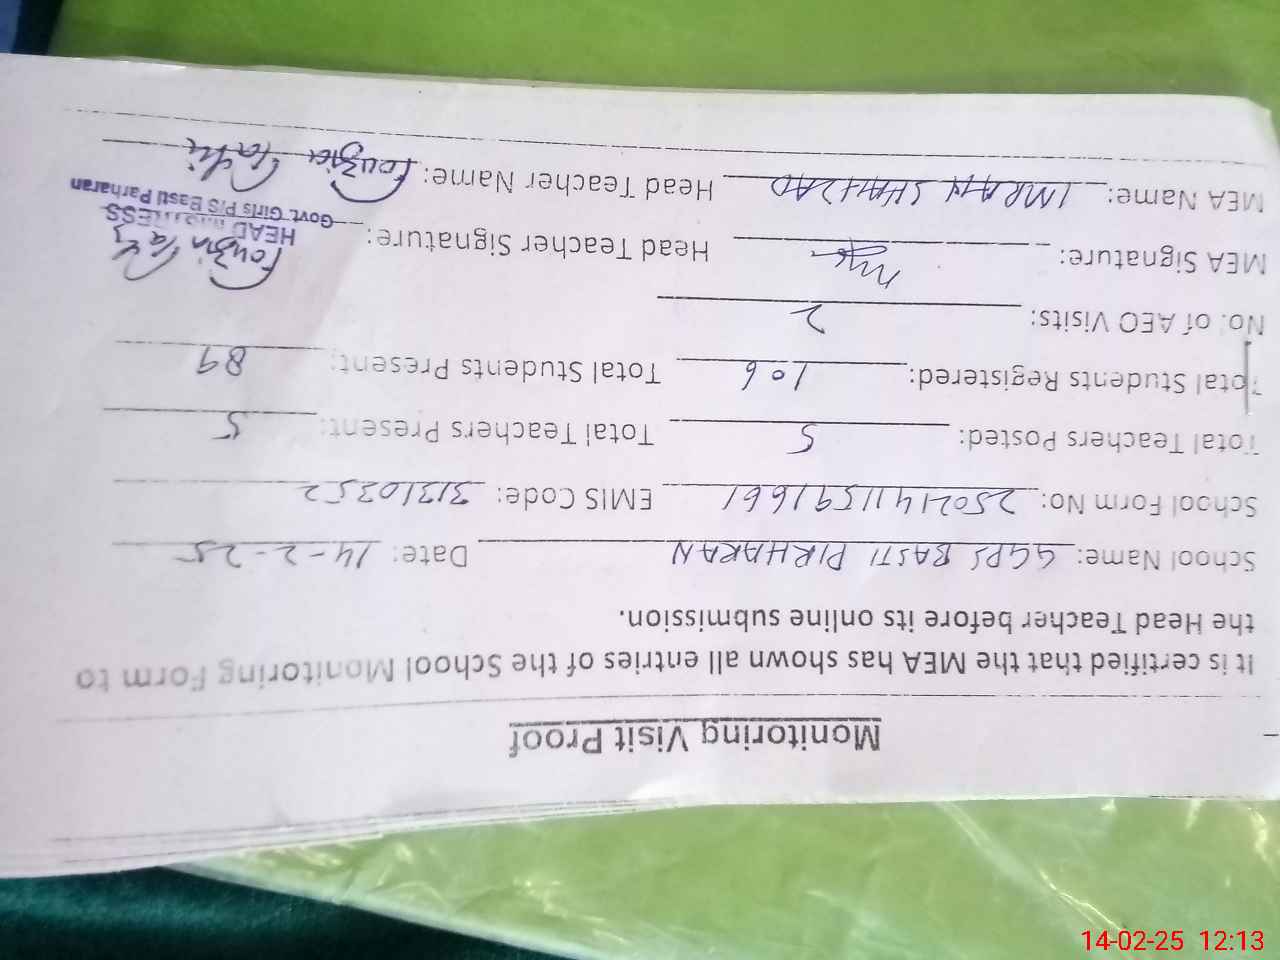 Monitoring Visit Proof
It is certified that the MEA has shown all entries of the School Monitoring Form to
the Head Teacher before its online submission.
School Name: GGPS BASTI PIRHARAN Date: 14-2-25
School Form No: 25021411591661 EMIS Code: 31310352
Total Teachers Posted: 5 Total Teachers Present: 5
Total Students Registered: 106 Total Students Present: 89
No. of AEO Visits: 2
MEA Signature: Head Teacher Signature: Fouzia
HEAD MISTRESS
Govt. Girls P/S Basti Parharan
MEA Name: IMRAN SHAHZAD Head Teacher Name: Fouzia
14-02-25 12:13